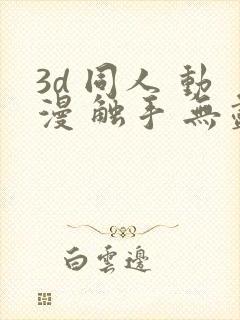 3d 同人 動
漫 触手 無
白雲邊